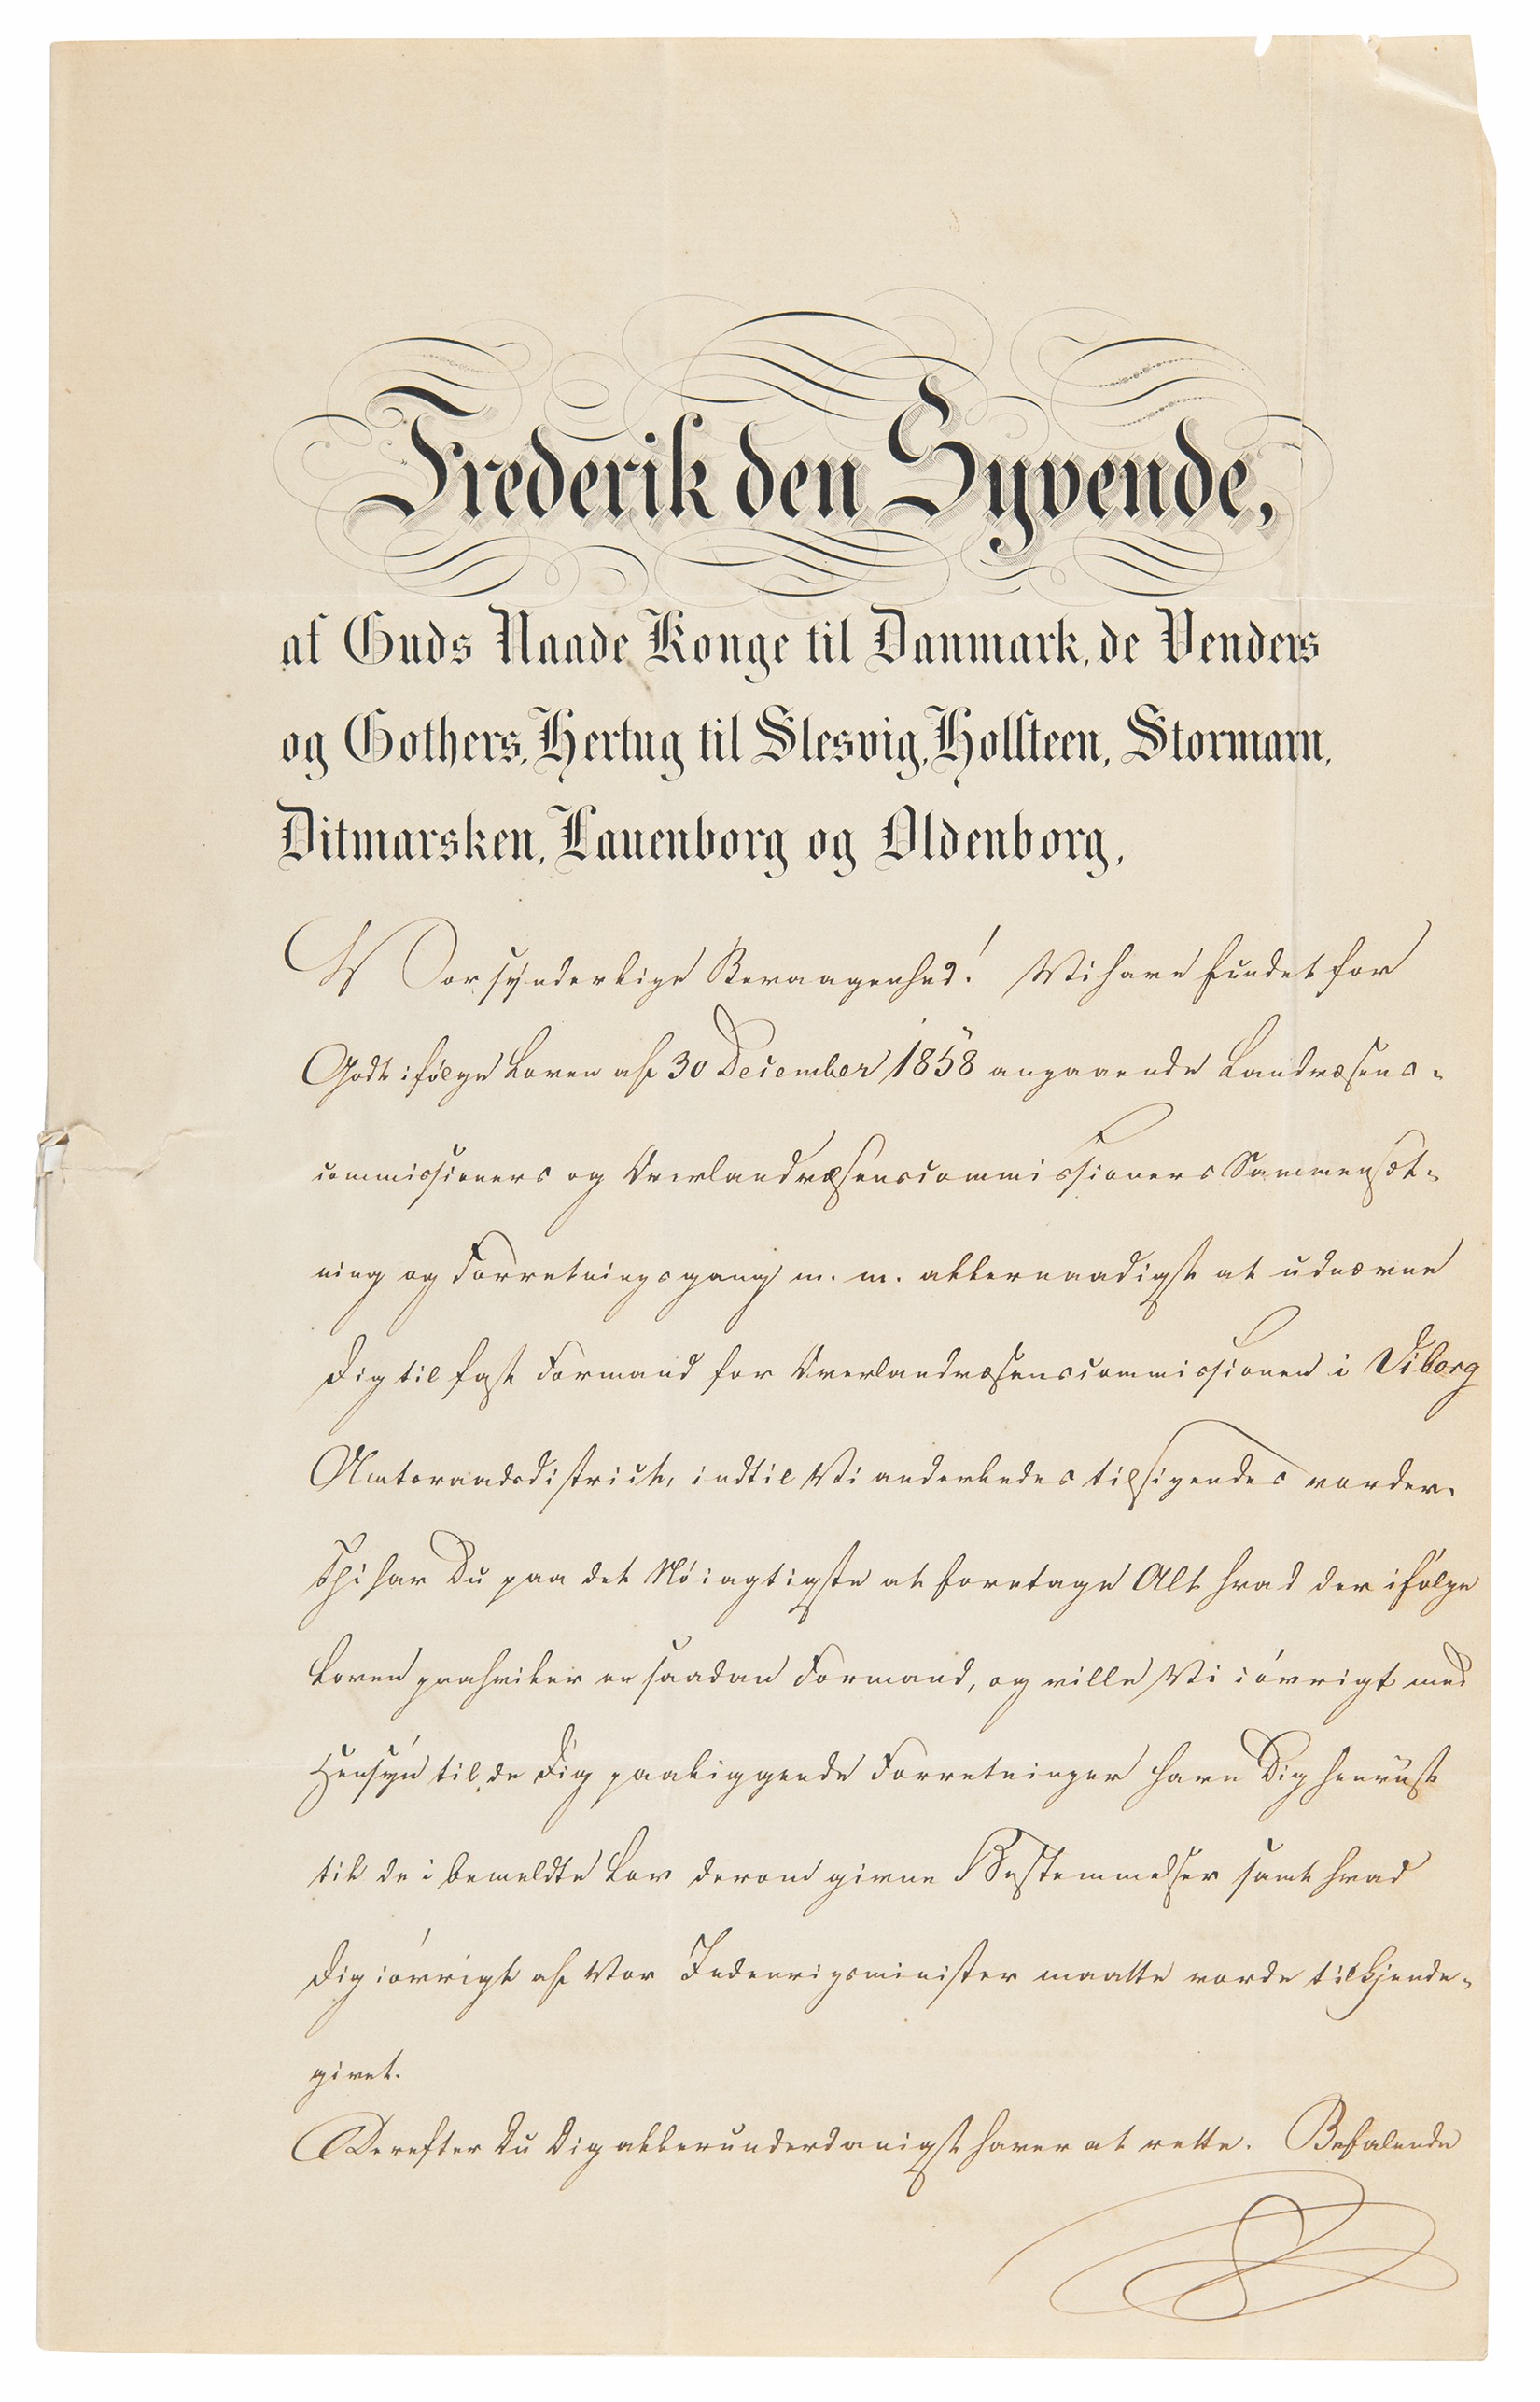 Frederik den Syvende,
af Guds Naade Konge til Danmark, de Venders
og Gothers, Hertug til Slesvig, Holsteen, Stormarn,
Ditmarsken, Lauenborg og Oldenborg,
Vor synderlige Bevaagenhed! Vi have fundet for
Godt ifølge Loven af 30 December 1858 angaaende Landvæsens-
commissioners og Overlandvæsenscommissioners Sammensæt-
ning og Forretningsgang m. m. allernaadigst at udnævne
Dig til fast Formand for Overlandvæsenscommissionen i Viborg
Amtsraadsdistrict, indtil Vi anderledes tilsigendes vorder.
Thi har Du paa det Nøiagtigste at foretage Alt hvad der ifølge
Loven paahviler en saadan Formand, og ville Vi iøvrigt med
Hensyn til de Dig paaliggende Forretninger have Dig henviist
til de i bemeldte Lov derom givne Bestemmelser samt hvad
Dig iøvrigt af Vor Indenrigsminister maatte vorde tilkjende-
givet.
Derefter Du Dig allerunderdanigst haver at rette. Befalende